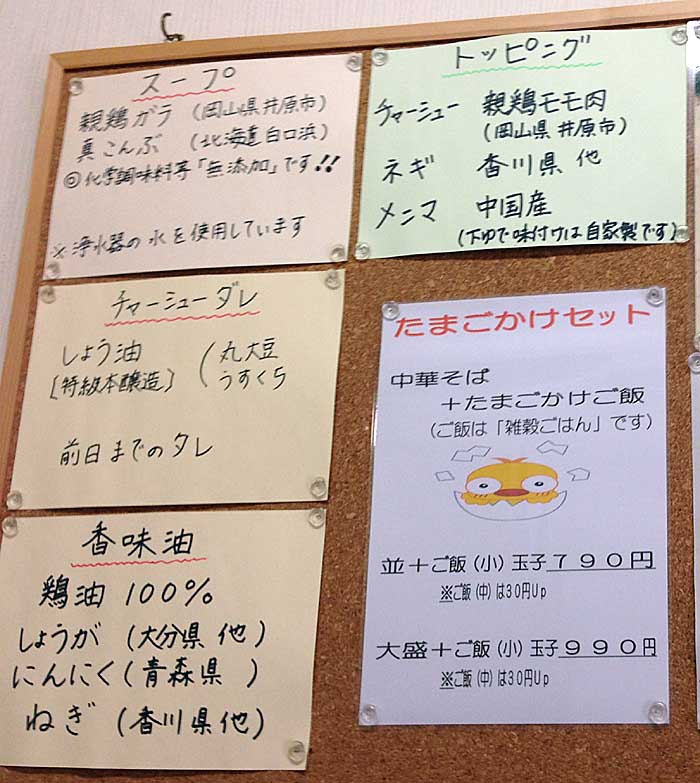 スープ
親鶏ガラ (岡山県井原市)
真こんぶ (北海道白口浜)
◎化学調味料等「無添加」です!!
※浄水器の水を使用しています
トッピング
チャーシュー 親鶏モモ肉
(岡山県井原市)
ネギ 香川県 他
メンマ 中国産
(下ゆで味付けは自家製です)
チャーシューダレ
しょう油 ( 丸大豆
[特級本醸造] うすくち
前日までのタレ
香味油
鶏油 100%
しょうが (大分県 他)
にんにく (青森県 )
ねぎ (香川県他)
たまごかけセット
中華そば
+たまごかけご飯
(ご飯は「雑穀ごはん」です)
並+ご飯(小)玉子790円
※ご飯(中)は30円Up
大盛+ご飯(小)玉子990円
※ご飯(中)は30円Up